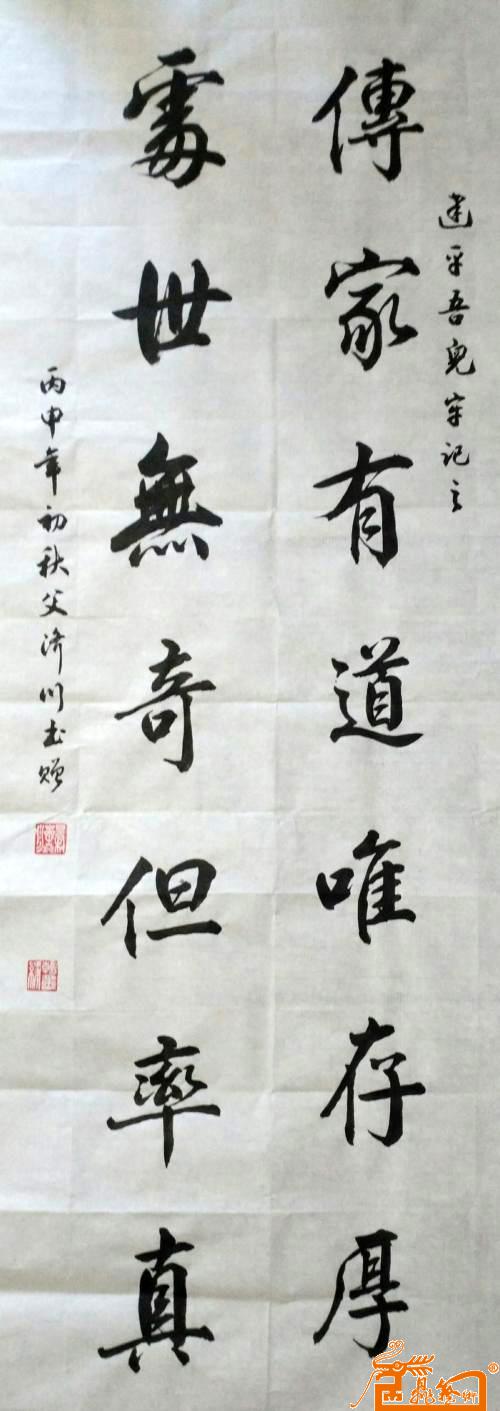 建平吾兒牢記之
傳家有道唯存厚
處世無奇但率真
丙申年初秋父濟川書贈